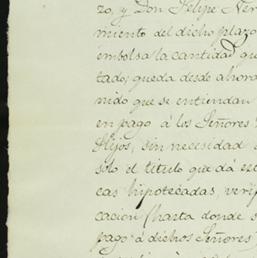 zo, y Don Felipe Ner
miento del dicho plazo
embolsa la cantidad que
tado; queda desde ahora
nido que se entiendan
en pago á los Señores
Hijos, sin necesidad
solo el titulo que dá es
cas hipotecadas, veri
cacion (hasta donde s
pago á dichos Señores